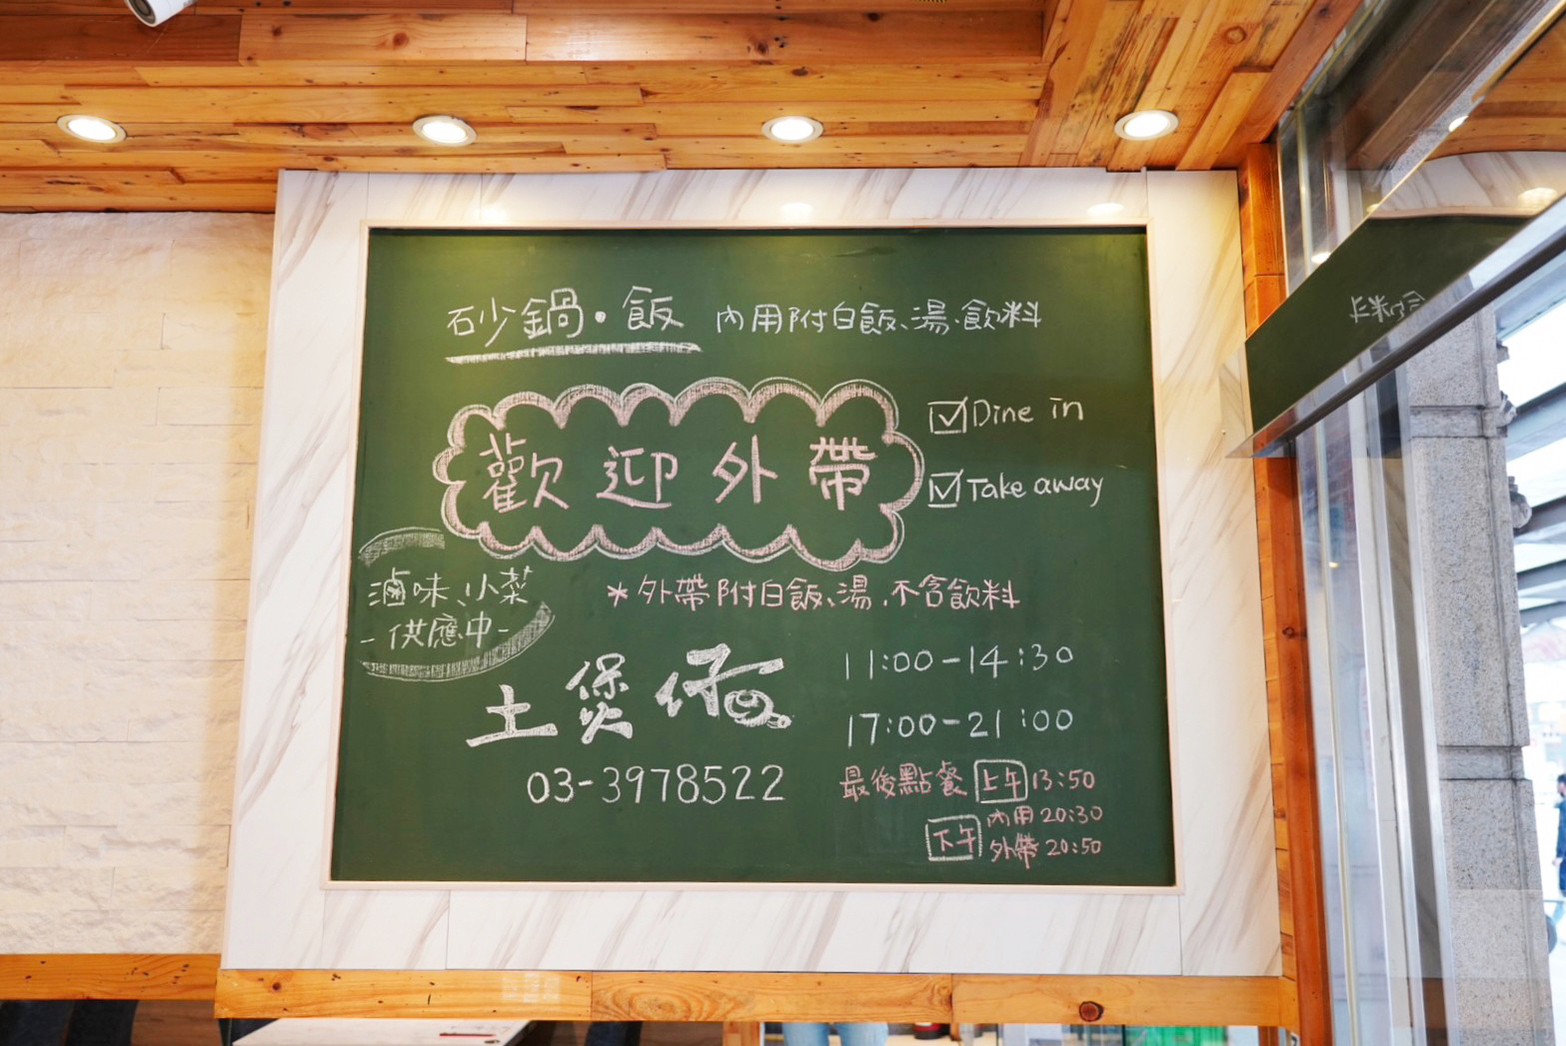 砂鍋・飯 內用附白飯、湯.飲料
歡迎外帶
☑Dine in
☑Take away
滷味、小菜
-供應中-
*外帶附白飯、湯.不含飲料
土煲
03-3978522
11:00-14:30
17:00-21:00
最後點餐 上午 13:50
下午 內用 20:30
外帶 20:50